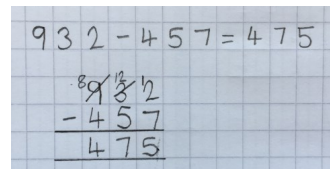 932-457=475
8 12 1
932
-457
475